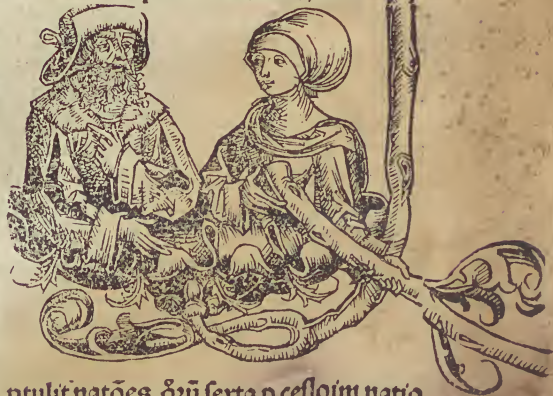 ꝓtulit natões. q̃rũ ſexta p ceſloim natio